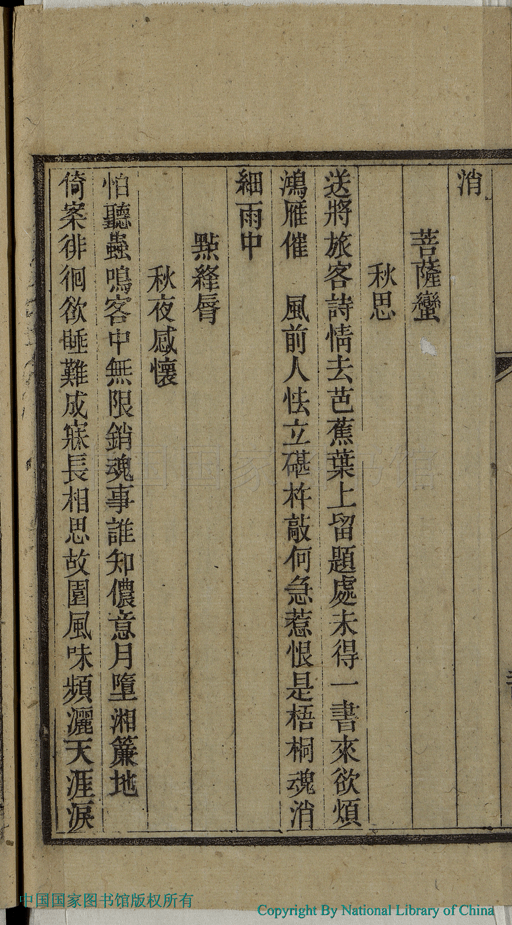 消
菩薩蠻
秋思
送將旅客詩情去芭蕉葉上留題處未得一書來欲煩
鴻雁催　風前人怯立碪杵敲何急惹恨是梧桐魂消
細雨中
點絳脣
秋夜感懷
怕聽蟲鳴客中無限銷魂事誰知儂意月墮湘簾地
倚案徘徊欲睡難成寐長相思故園風味頻灑天涯淚
中国国家图书馆版权所有
Copyright By National Library of China